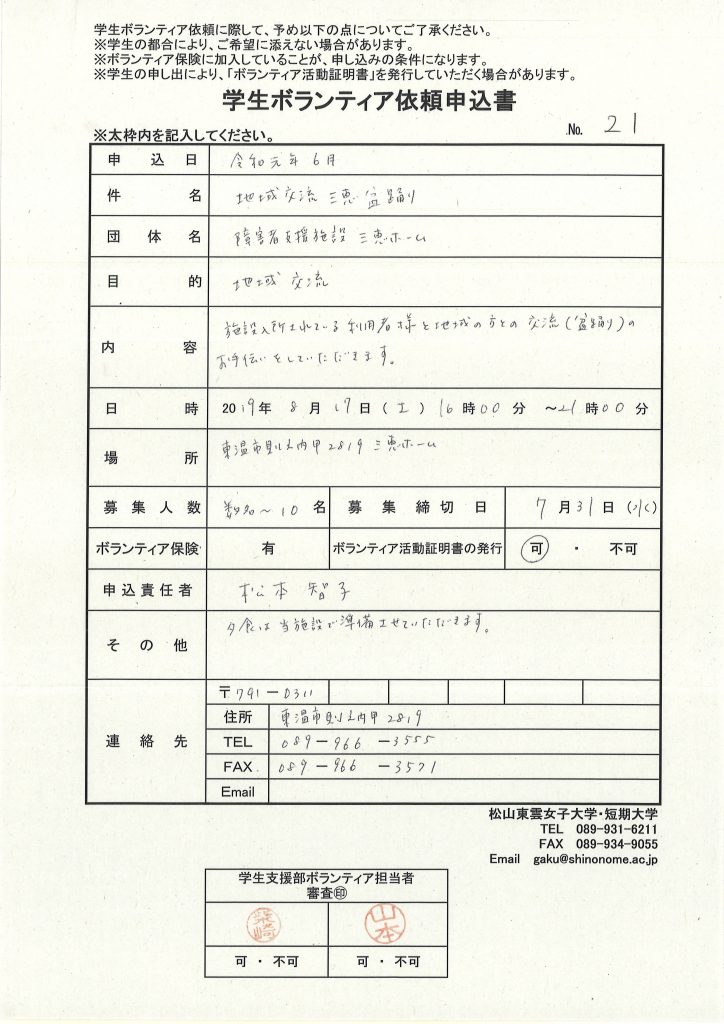 学生ボランティア依頼に際して、予め以下の点についてご了承ください。
※学生の都合により、ご希望に添えない場合があります。
※ボランティア保険に加入していることが、申し込みの条件になります。
※学生の申し出により、「ボランティア活動証明書」を発行していただく場合があります。
学生ボランティア依頼申込書
※太枠内を記入してください。
No. 21
申込日 令和元年6月
件名 地域交流 三恵 盆踊り
団体名 障害者支援施設 三恵ホーム
目的 地域交流
内容 施設入所されている利用者様と地域の方との交流(盆踊り)の
お手伝いをしていただきます。
日時 2019年 8月 17日(土) 16時00分 ～21時00分
場所 東温市則之内甲2819 三恵ホーム
募集人数 数名～10名 募集締切日 7月31日(水)
ボランティア保険 有 ボランティア活動証明書の発行 可 ・ 不可
申込責任者 松本 智子
その他 夕食は当施設で準備させていただきます。
連絡先 〒791-0311
住所 東温市則之内甲2819
TEL 089-966-3555
FAX 089-966-3571
Email
松山東雲女子大学・短期大学
TEL 089-931-6211
FAX 089-934-9055
Email gaku@shinonome.ac.jp
学生支援部ボランティア担当者
審査㊞
山本
可 ・ 不可 可 ・ 不可